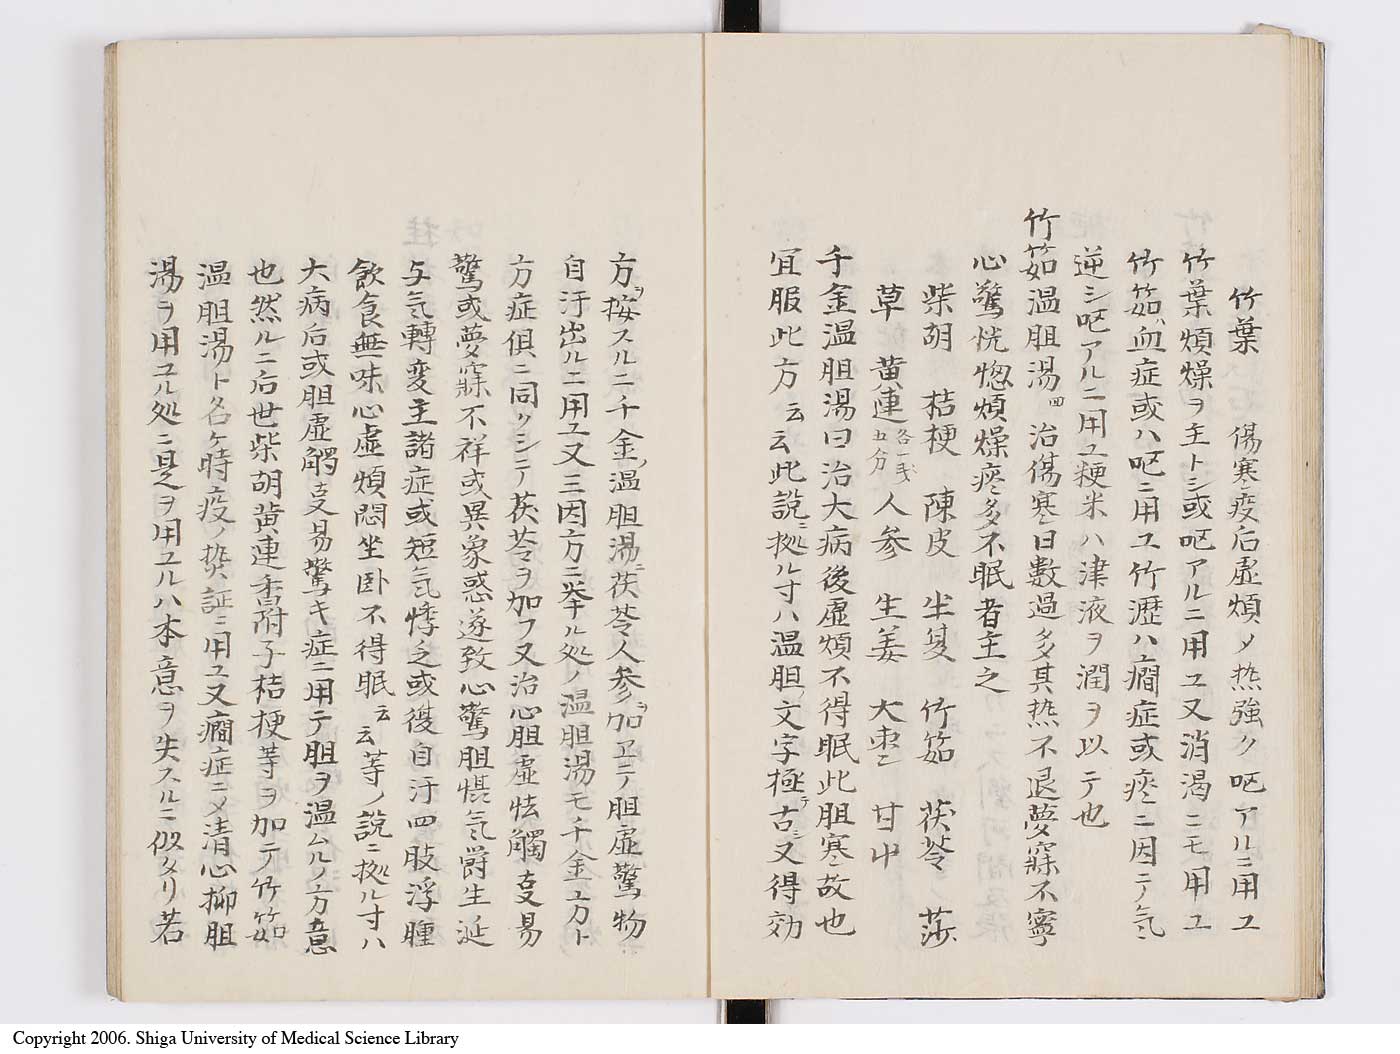 竹葉　傷寒疫后虚煩メ热強ク呕アルニ用ユ
竹葉煩燥ヲ主トシ或呕アルニ用ユ又消渇ニモ用ユ
竹筎ハ血症或ハ呕ニ用ユ竹瀝ハ癇症或痰ニ因テ气
逆シ呕アルニ用ユ粳米ハ津液ヲ潤ヲ以テ也
竹筎温胆湯四　治傷寒日數過多其热不退夢寐不寧
心驚恍惚煩燥痰多不眠者主之
柴胡　桔梗　陳皮　半夏　竹筎　茯苓　莎
草　黄連各一戔五分　人参　生姜　大枣二　甘中
千金温胆湯曰治大病後虚煩不得眠此胆寒故也
宜服此方云云此說ニ拠ル寸ハ温胆ノ文字極テ古シ又得効
方ヲ按スルニ千金ノ温胆湯ニ茯苓人参ヲ加ヱテ胆虚驚物
自汗出ルニ用ユ又三因方ニ挙ル処ノ温胆湯モ千金ユカト
方症俱ニ同クシテ茯苓ヲ加フ又治心胆虚怯觸支易
驚或夢寐不祥或異象惑遂致心驚胆惧气欝生涎
与气轉変主諸症或短气悸乏或復自汗四肢浮腫
飲食無味心虚煩悶坐卧不得眠云云等ノ說ニ拠ル寸ハ
大病后或胆虚觸支易驚キ症ニ用テ胆ヲ温ムルノ方意
也然ルニ后世柴胡黄連香附子桔梗等ヲ加テ竹筎
温胆湯ト名ケ時疫ノ热証ニ用ユ又癇症ニメ清心抑胆
湯ヲ用ユル処ニ是ヲ用ユルハ本意ヲ失スルニ似タリ若
Copyright 2006. Shiga University of Medical Science Library